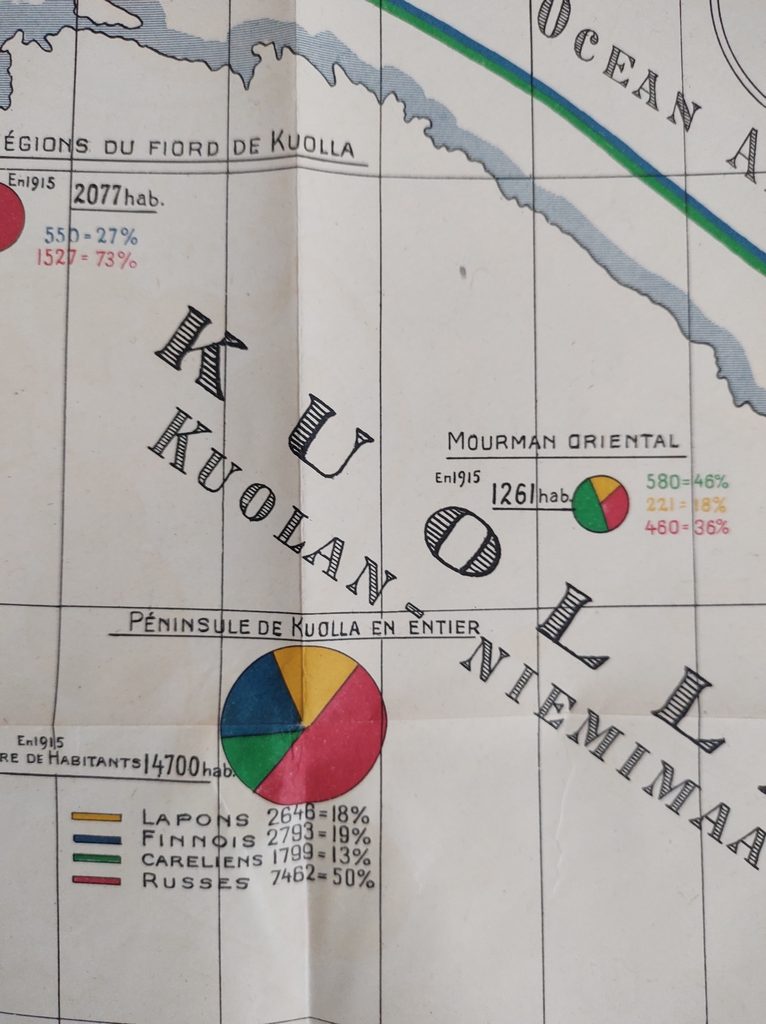 OCEAN A
ÉGIONS DU FIORD DE KUOLLA
En 1915 2077 hab.
550 = 27%
1527 = 73%
KUOLL
KUOLAN-NIEMIMAA
MOURMAN ORIENTAL
En 1915 1261 hab.
580 = 46%
221 = 18%
460 = 36%
PÉNINSULE DE KUOLLA EN ENTIER
En 1915
RE DE HABITANTS 14700 hab.
LAPONS 2646 = 18%
FINNOIS 2793 = 19%
CARELIENS 1799 = 13%
RUSSES 7462 = 50%